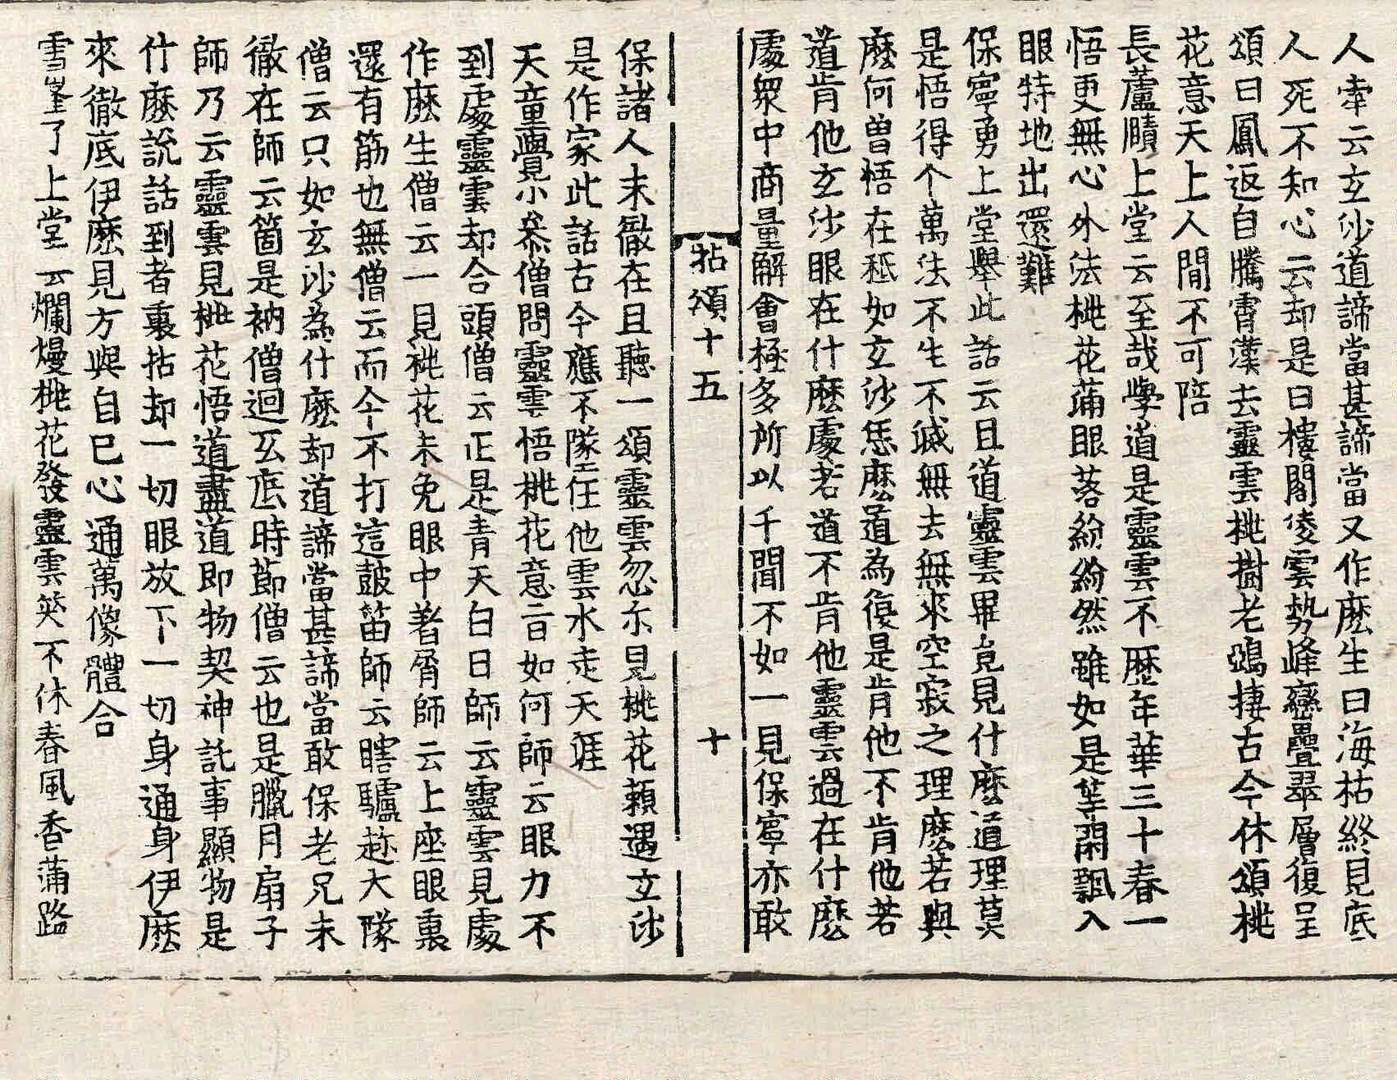 人牽云玄沙道諦當甚諦當又作麽生曰海枯終見底
人死不知心云却是曰樓閣凌雲勢峰巒疊翠層復呈
頌曰鳳返自騰霄漢去靈雲桃樹老鵶棲古今休頌桃
花意天上人間不可陪
長蘆賾上堂云至哉學道是靈雲不歷年華三十春一
悟更無心外法桃花滿眼落紛紛然雖如是等閑飄入
眼特地出還難
保寧勇上堂舉此話云且道靈雲畢竟見什麽道理莫
是悟得个萬法不生不滅無去無來空寂之理麽若與
麽何曾悟在秖如玄沙恁麽道為復是肯他不肯他若
道肯他玄沙眼在什麽處若道不肯他靈雲過在什麽
處衆中商量解會極多所以千聞不如一見保寧亦敢
拈頌十五
十
保諸人未徹在且聽一頌靈雲忽尒見桃花賴遇玄沙
是作家此話古今應不墜任他雲水走天涯
天童覺小叅僧問靈雲悟桃花意旨如何師云眼力不
到處靈雲却合頭僧云正是青天白日師云靈雲見處
作麽生僧云一見桃花未免眼中著屑師云上座眼裏
還有筋也無僧云而今不打這皷笛師云瞎驢趂大隊
僧云只如玄沙為什麽却道諦當甚諦當敢保老兄未
徹在師云箇是衲僧迴互底時節僧云也是臘月扇子
師乃云靈雲見桃花悟道盡道即物契神託事顯物是
什麽說話到者裏拈却一切眼放下一切身通身伊麽
來徹底伊麽見方與自己心通萬像體合
雪峯了上堂云爛熳桃花發靈雲笑不休春風香滿路